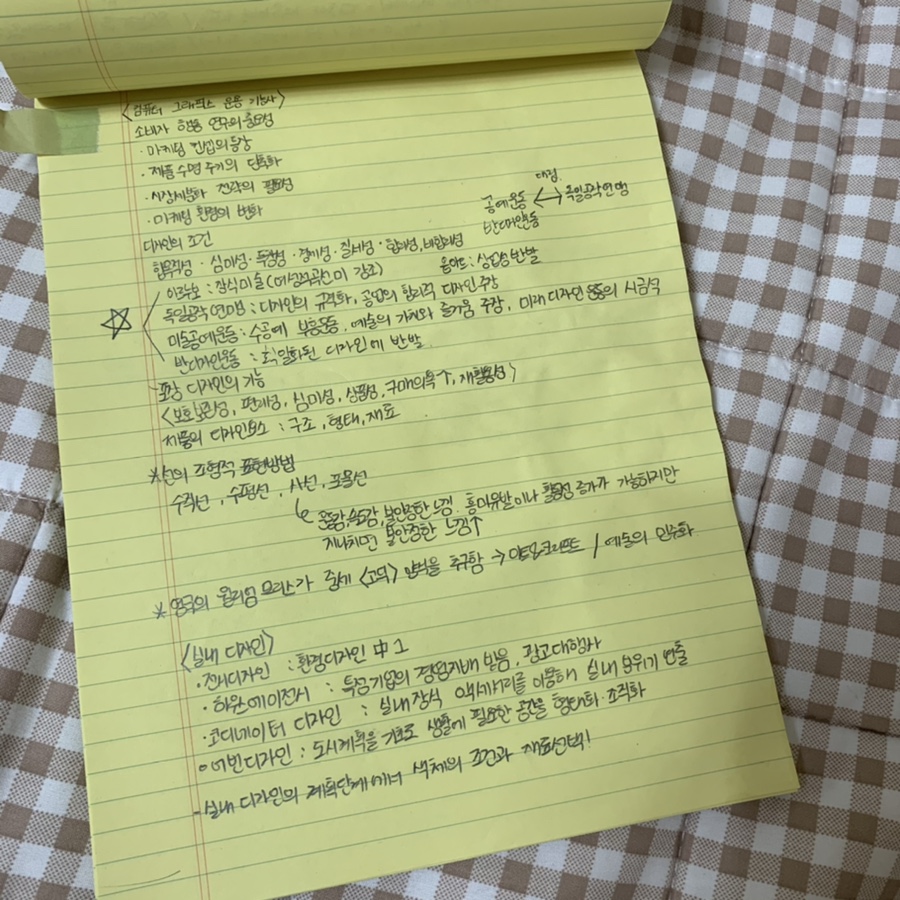 <컴퓨터 그래픽스 운용 기능사>
소비자 행동 연구의 중요성
· 마케팅 컨셉의 등장
· 제품 수명 주기의 단축화
· 시장세분화 전략의 필요성
· 마케팅 환경의 변화
대립
공예운동 ↔ 독일공작연맹
반대여운동
디자인의 조건
합목적성 · 심미성 · 독창성 · 경제성 · 질서성 · 합리성, 비합리성
아르누보 : 장식미술 (여성적 곡선미 강조)
상업성 반발
독일공작연맹 : 디자인의 규격화, 공업의 합리적 디자인 주장
미술공예운동 : 수공예 부흥운동, 예술의 가치와 즐거움 주장, 미래 디자인 운동의 시금석
반디자인운동 : 획일화된 디자인에 반발
포장 디자인의 기능
<보호보존성, 편리성, 심미성, 상품성, 구매의욕↑, 재활용성>
제품의 디자인요소 : 구조, 형태, 재료
*선의 조형적 표현방법
수직선, 수평선, 사선, 포물선
운동감, 속도감, 불안정한 느낌. 흥미유발이나 활동성 증가가 가능하지만
지나치면 불안정한 느낌↑
* 영국의 윌리엄 모리스가 중세 <고딕> 양식을 추구함 → 아트앤크래프트 / 예술의 민주화
<실내 디자인>
· 전시디자인 : 환경디자인 中 1
· 하우스에이전시 : 특정기업의 경영지배 받음, 광고대행사
· 코디네이터 디자인 : 실내장식 악세사리를 이용해 실내 분위기 연출
○ 어번디자인 : 도시계획을 기초로 생활에 필요한 공간을 형태화 조직화
- 실내 디자인의 계획단계에서 색채의 조건과 재료선택!